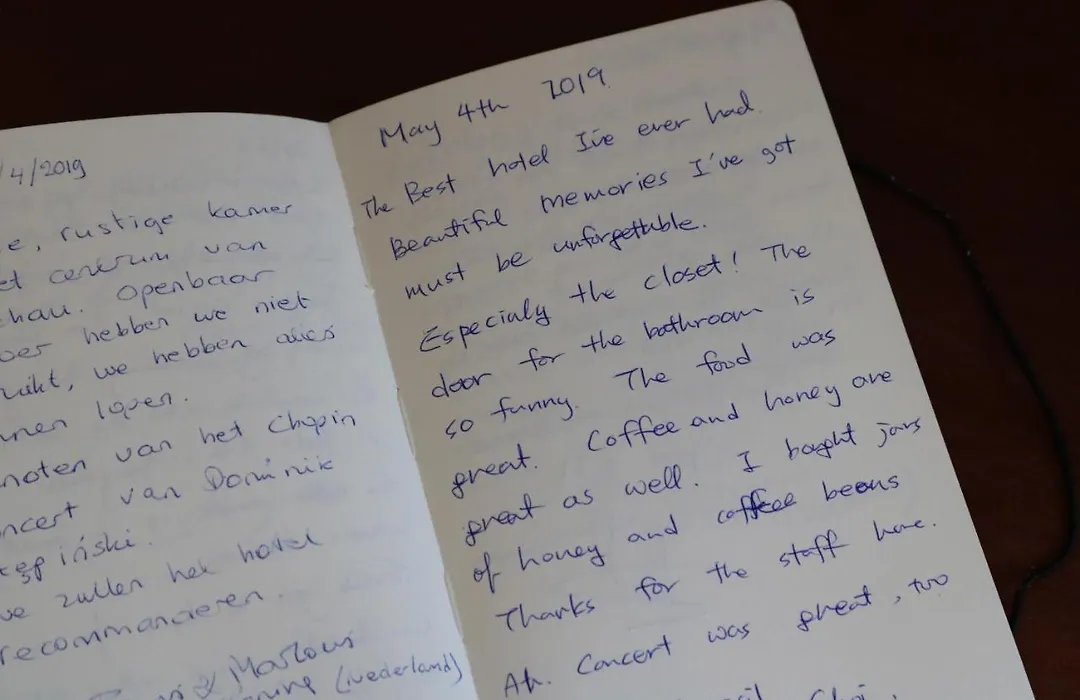 /4/2019
e, rustige kamer
et centrum van
chau. Openbaar
oer hebben we niet
uikt, we hebben alles
nnen lopen.
noten van het Chopin
ncert van Dominik
iński.
we zullen het hotel
recommanderen.
Marlous
(Nederland)
May 4th 2019.
The Best hotel I've ever had.
Beautiful memories I've got
must be unforgettable.
Especialy the closet! The
door for the bathroom is
so funny. The food was
great. Coffee and honey are
great as well. I bought jars
of honey and coffee beans
Thanks for the staff here.
Ah. Concert was great, too